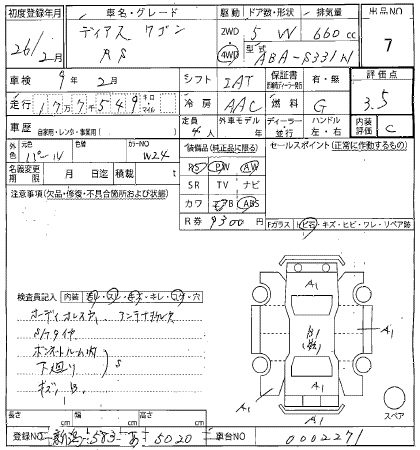 初度登録年月 車名・グレード 駆動 ドア数・形状 排気量 出品NO
26/2月 ディアス ワゴン RS 2WD 4WD 5 W 660cc 7
型式 ABA-S331N
車検 9年 2月 シフト IAT 保証書 有・無 評価点
走行 177549 キロ マイル 冷房 AAC 燃料 G 3.5
車歴 自家用・レンタ・事業用( ) 定員 4人 外車モデル 年 ディーラー・並行 ハンドル 左・右 内装評価 C
外色 パール 色替 カラーNO W24 装備品(純正品に限る) セールスポイント(正常に作動するもの)
名義変更期限 月 日迄 積載 t PS PW AW
SR TV ナビ
注意事項(欠品・修復・不具合箇所および状態) カワ エアB ABS
R券 9300 Fガラス ヒ石・キズ・ヒビ・ワレ・リペア跡
検査員記入 内装 ヨレ・スレ・キズ・キレ・コゲ・穴
オーディオレス
Sハタイヤ
ボンネットルーム内
下廻り S
キズ
A1
A1
A1
A1
A1
スペア
長さ cm 幅 cm 高さ cm
登録NO 新潟 583 あ 5020 車台NO 0002271